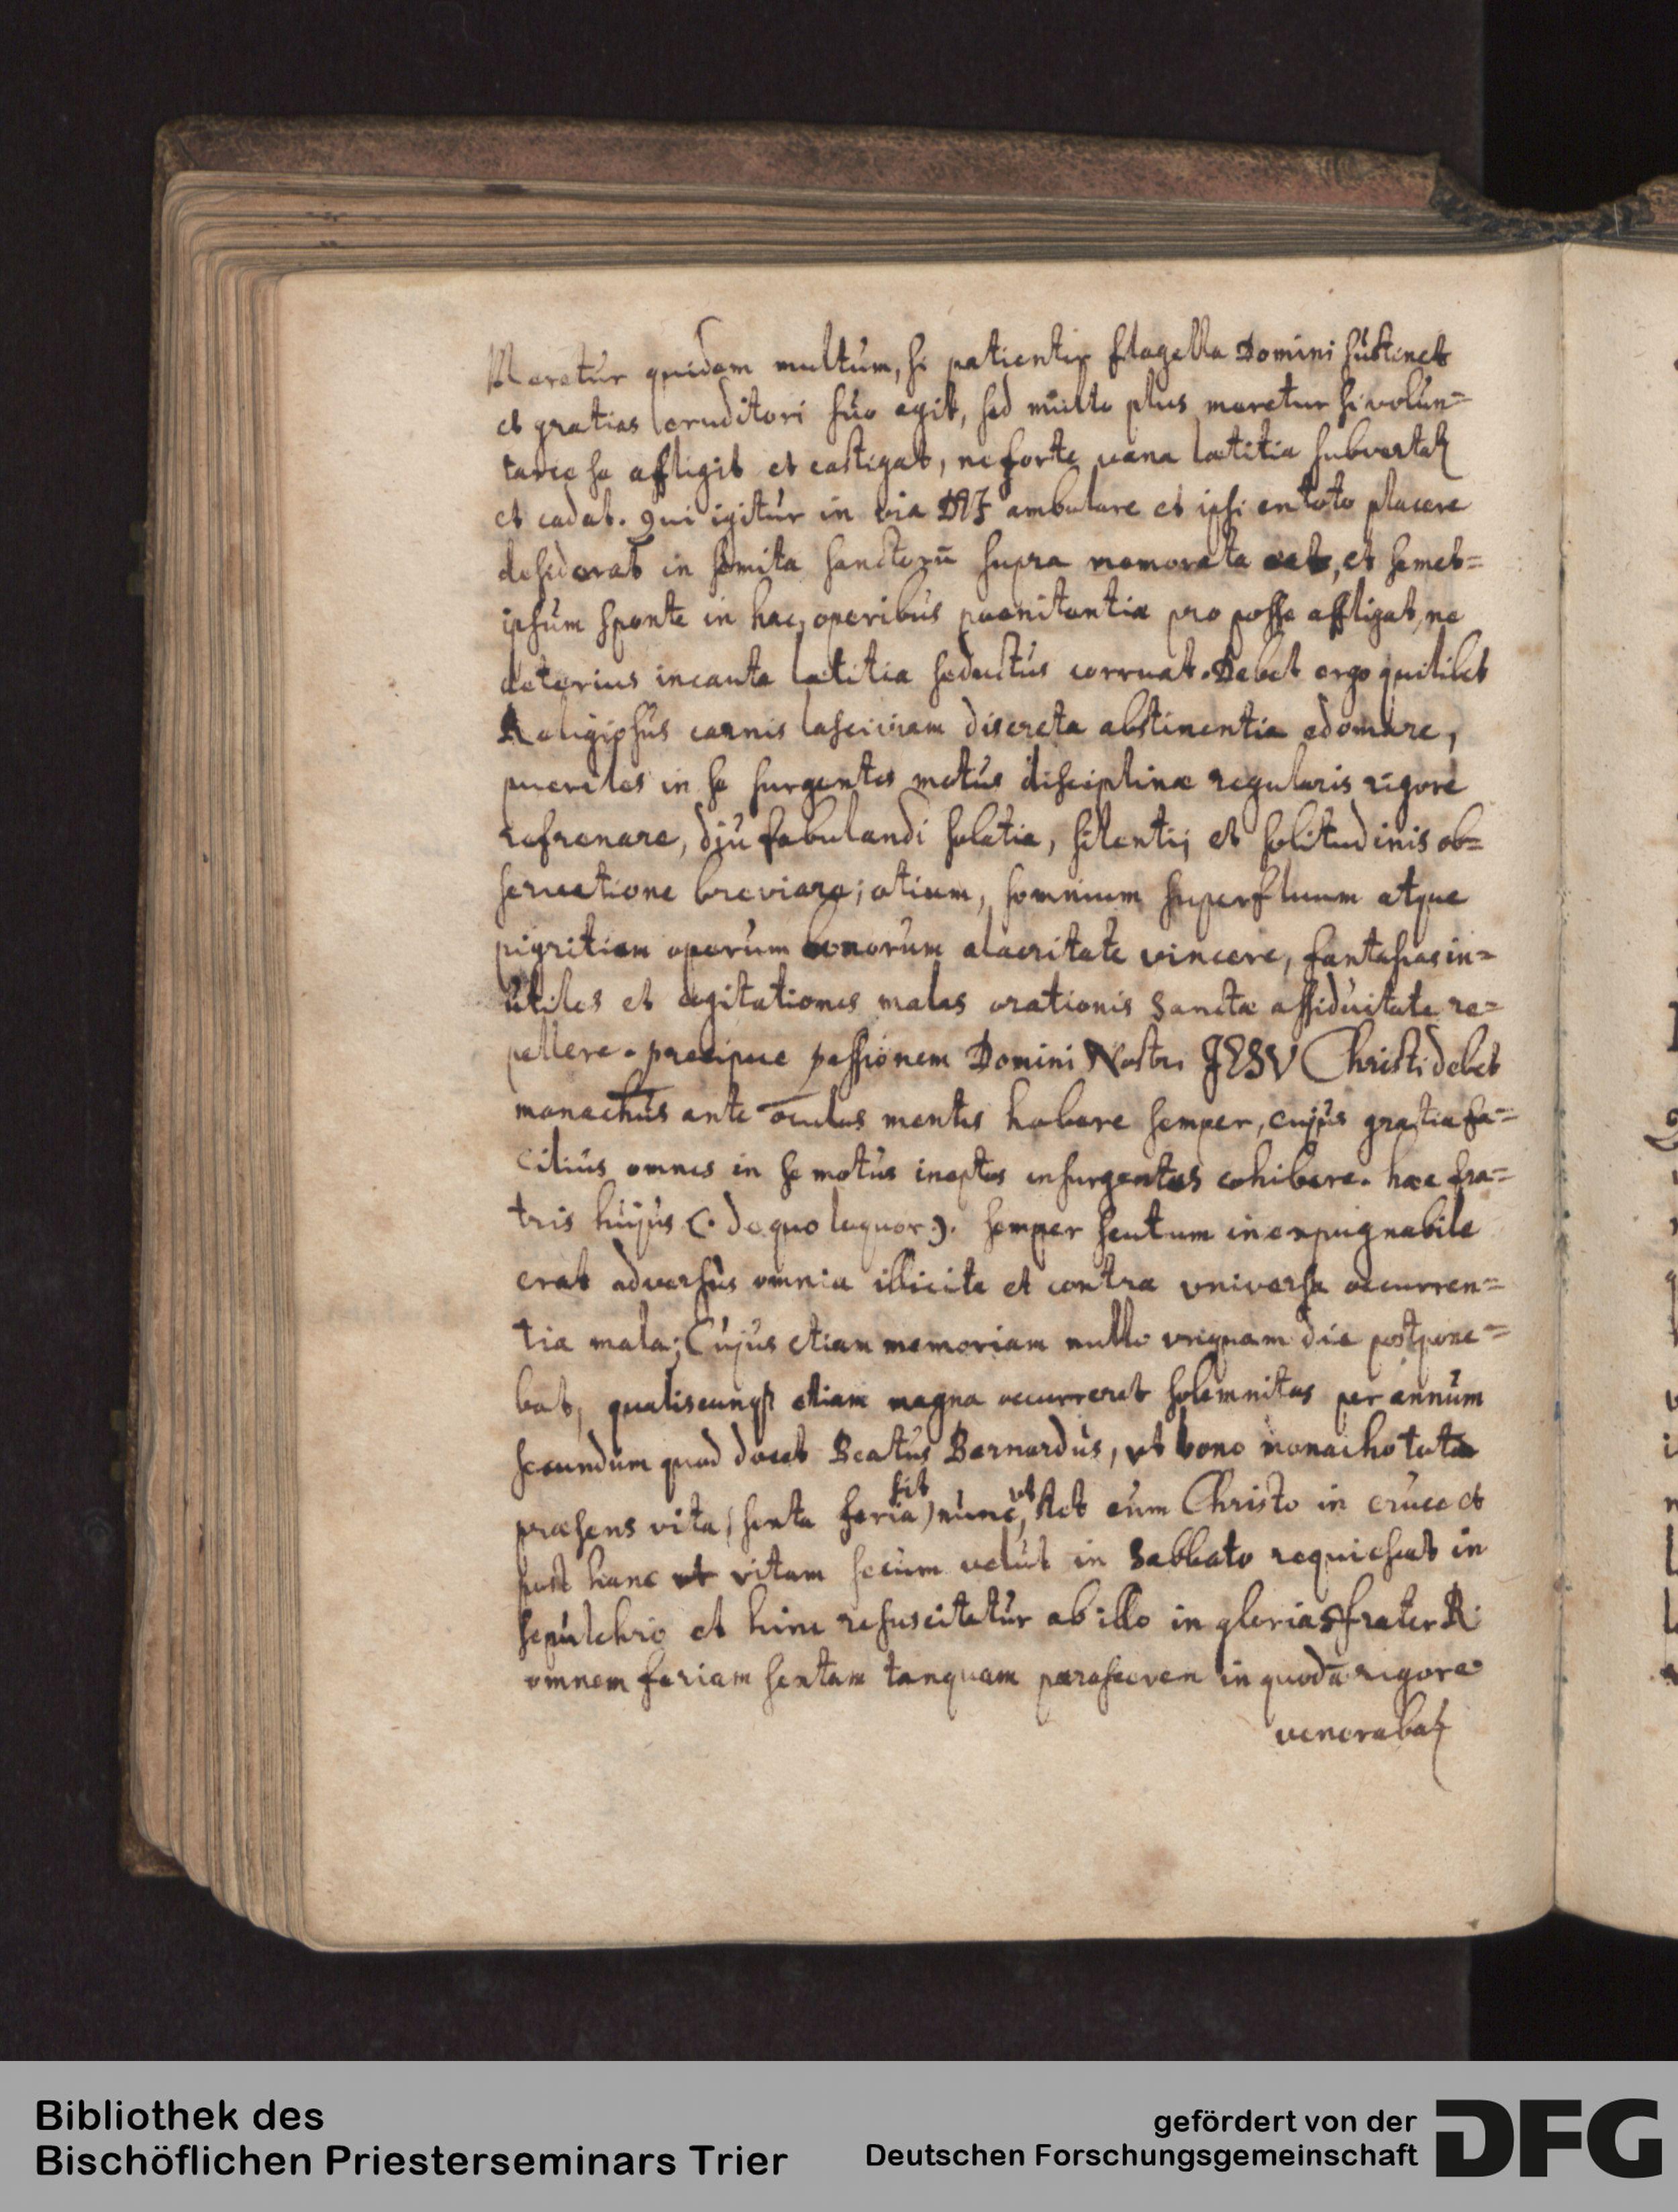 Meretur quidem multum, si patienter flagella Domini sustinet
et gratias eruditori suo agit, sed multo plus meretur si volun=
tarie se affligit et castigat, ne forte vana lætitia subvertat
et cadat. Qui igitur in via DEI ambulare et ipsi ex toto placere
desiderat in semita sanctorū supra memorata eat, et semet=
ipsum sponte in hac, operibus pœnitentiæ pro posse affligat, ne
deterius incauta lætitia seductus corruat. Debet ergo quilibet
Religiosus carnis lasciviam discreta abstinentia edomare,
pueriles in se surgentes motus disciplinæ regularis rigore
refrenare, diu fabulandi solatia, silentij et solitudinis ob=
servatione breviare; otium, somnium superfluum atque
pigritiem operum bonorum alacritate vincere, fantasias in=
utiles et cogitationes malas orationis sanctæ assiduitate re=
pellere. præcipue passionem Domini Nostri JESV Christi debet
monachus ante oculos mentis habere semper, cujus gratia fa=
cilius omnes in se motus ineptos insurgentes cohibere. hæc fra=
tris hujus (: de quo loquor :). semper scutum inexpugnabile
erat adversus omnia illicita et contra vniversa occurren=
tia mala; Cujus etiam memoriam nullo vnquam die postpone=
bat, qualiscunqȝ etiam magna occurreret solemnitas per annum
secundum quod docet Beatus Bernardus, vt bono monacho tota
sit vt
præsens vita (sexta feria) nunc, stet cum Christo in cruce et
post hanc vt vitam secum velut in Sabbato requiescat in
sepulchro et hinc resuscitetur ab illo in gloria frater R.
omnem feriam sextam tanquam parasceven in quodā rigore
venerabat